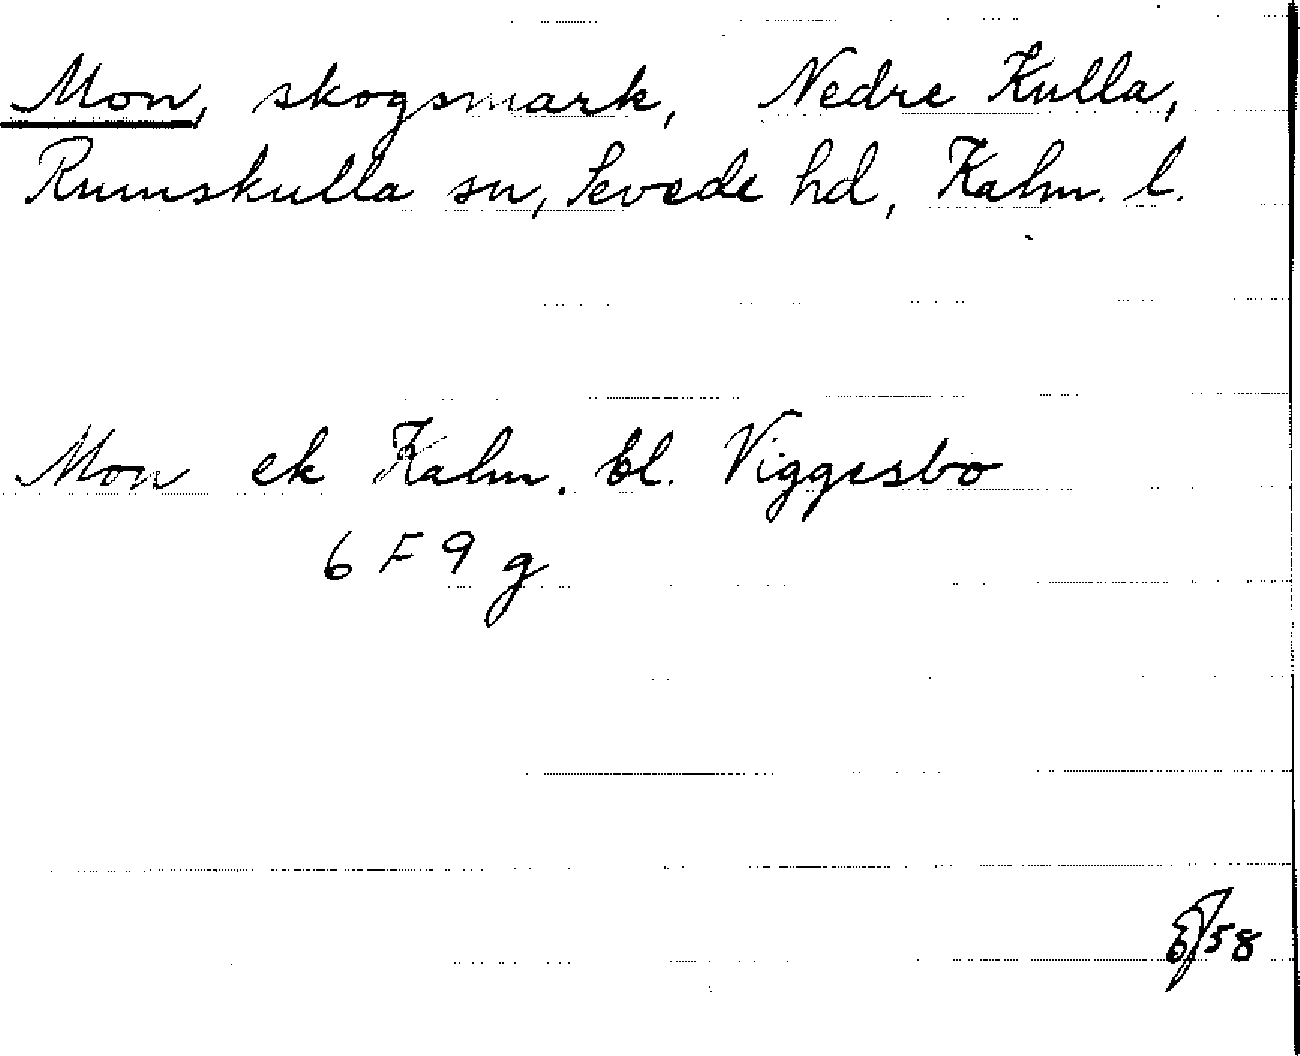 Mon, skogsmark, Nedre Kulla,
Rumskulla sn, Sevede hd, Kalm. l.
Mon ek Kalm. bl. Viggesbo
6 F 9 g
58